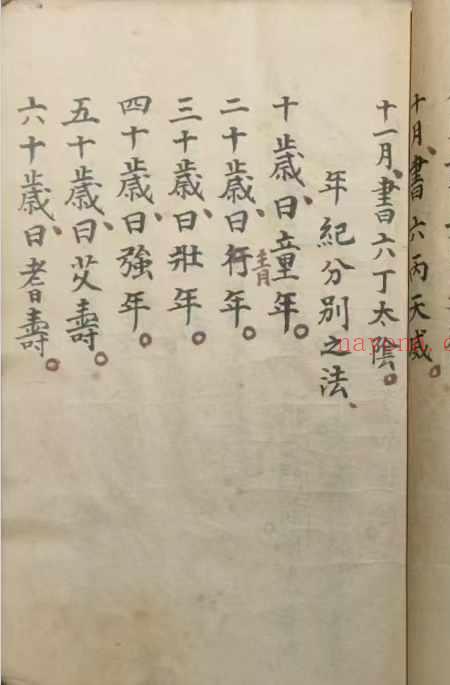 十月、書六丙天威。
十一月、書六丁太陰。
年紀分別之法、
十歲、曰童年。
二十歲、曰行年。
青
三十歲、曰壯年。
四十歲、曰強年。
五十歲、曰艾壽。
六十歲、曰耆壽。